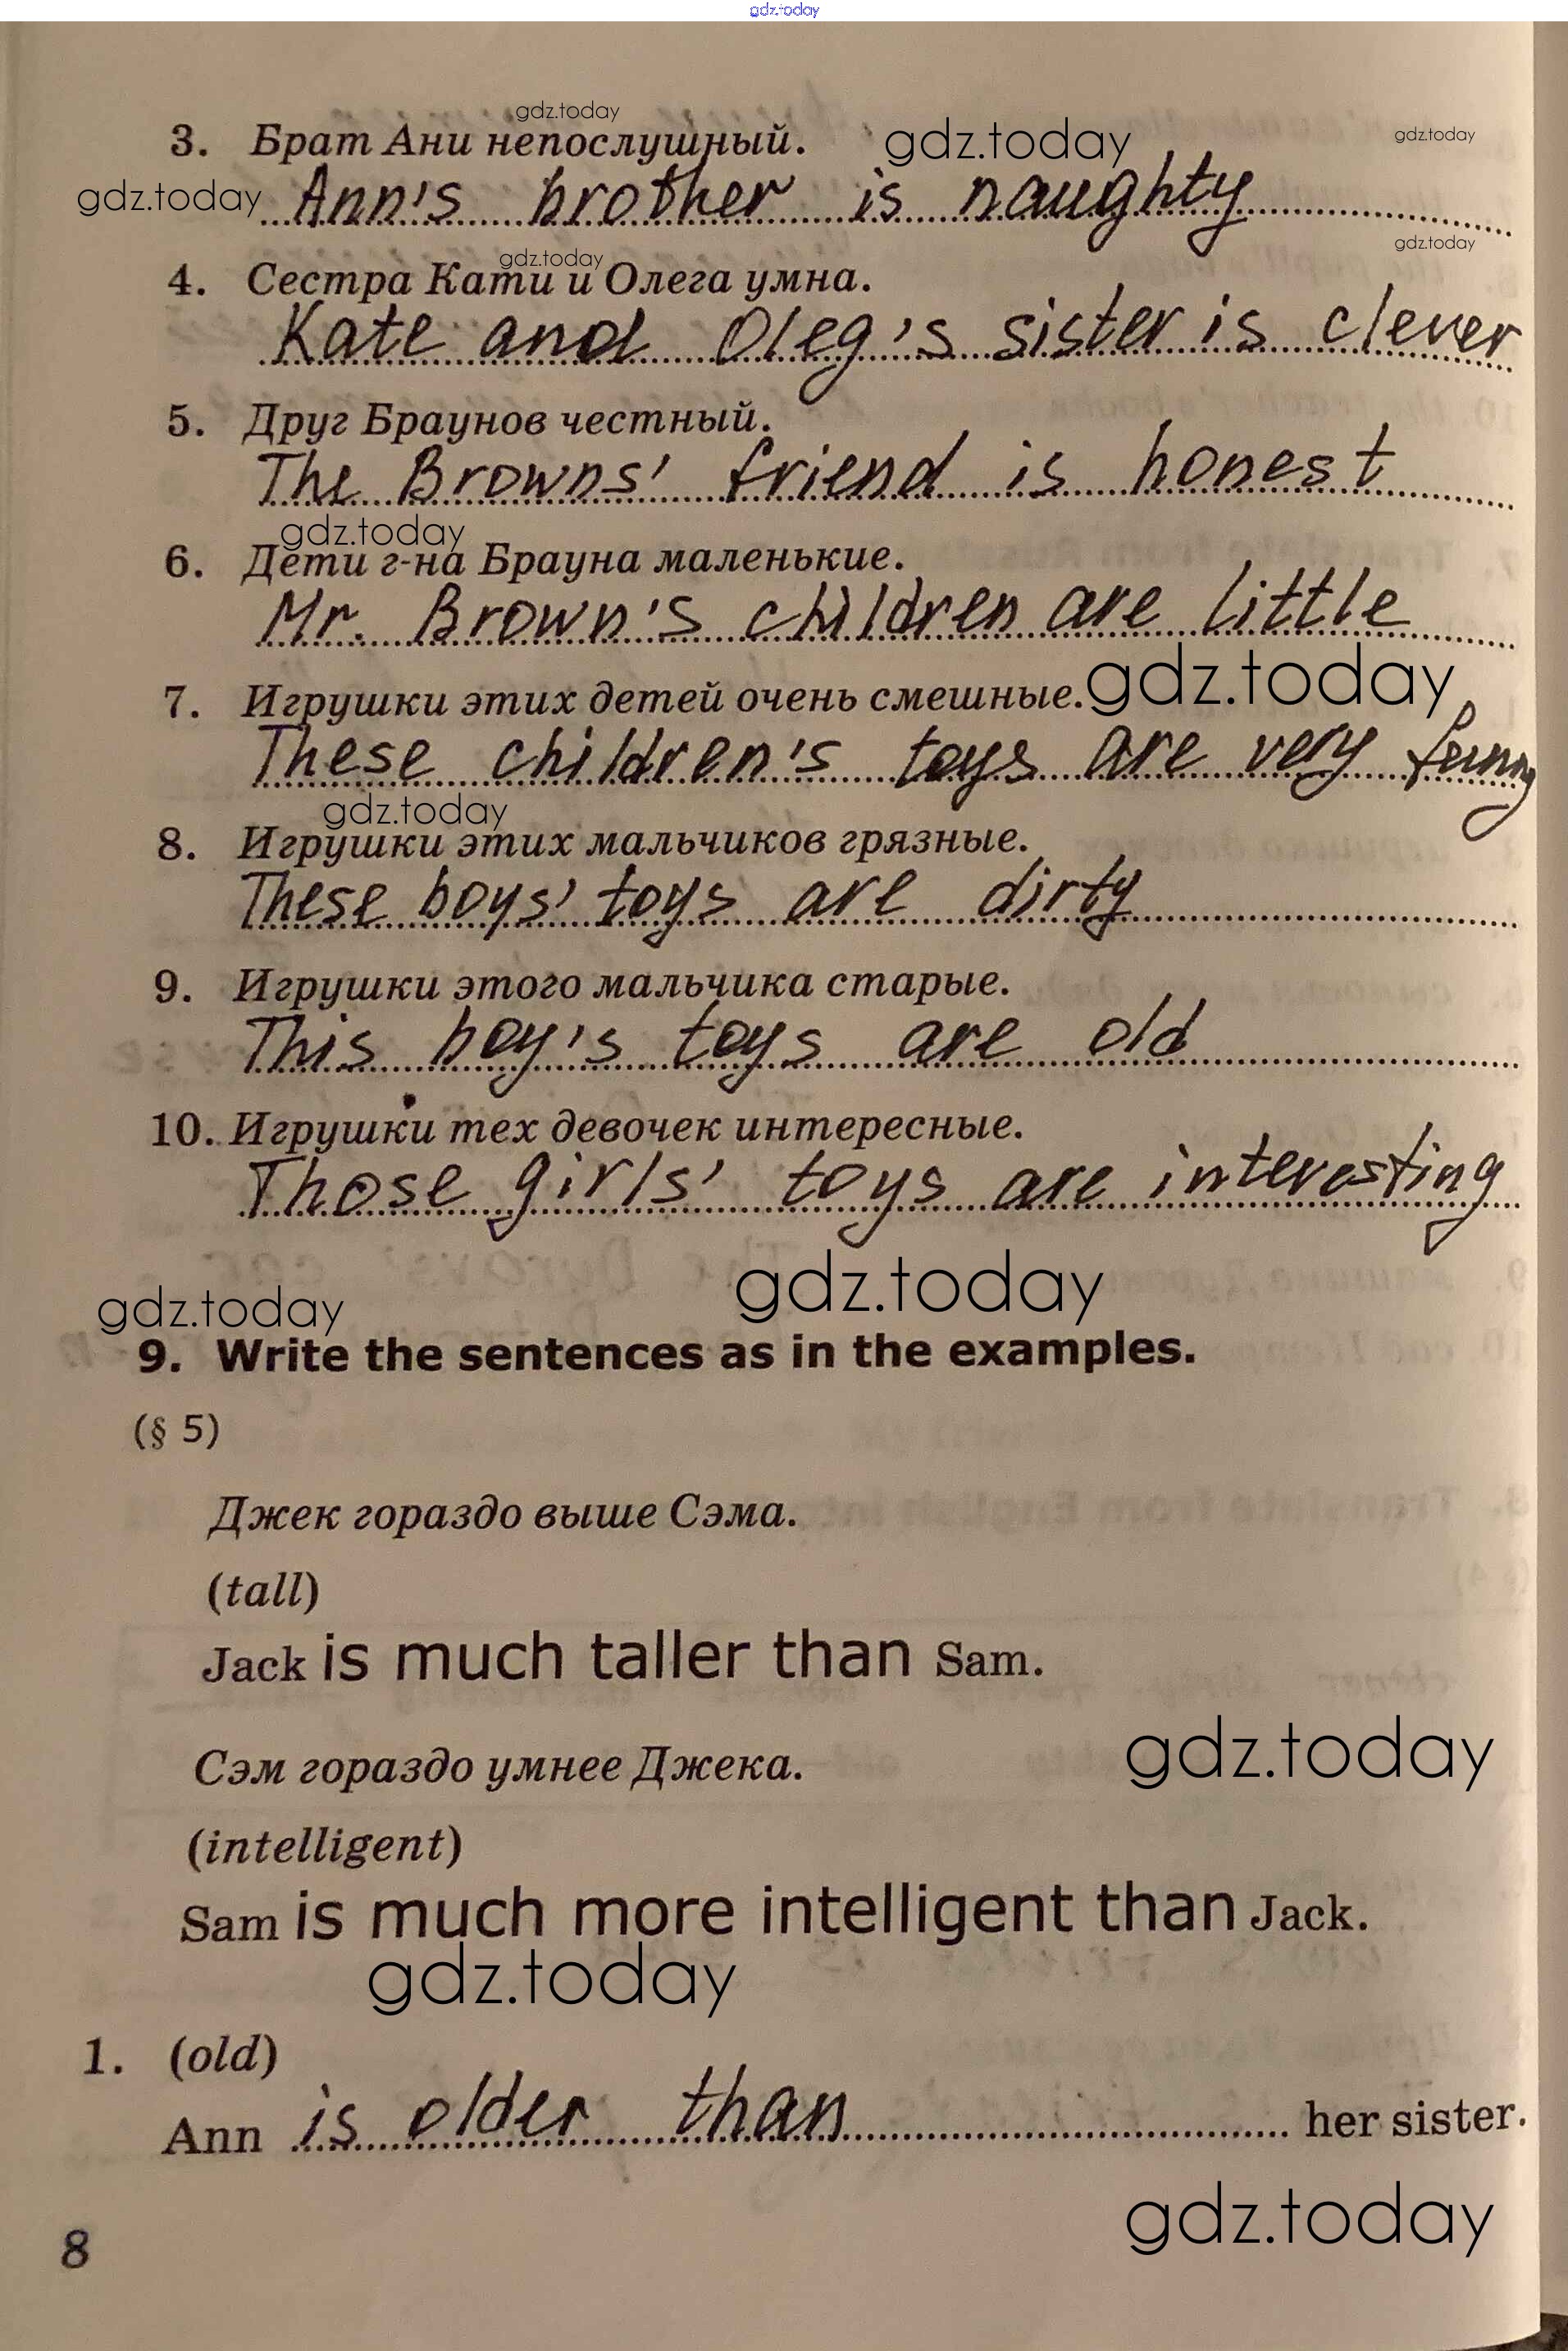 gdz.today
gdz.today
3. Брат Ани непослушный. gdz.today gdz.today
gdz.today Ann's brother is naughty
gdz.today
gdz.today
4. Сестра Кати и Олега умна.
Kate and Oleg's sister is clever
5. Друг Браунов честный.
The Browns' friend is honest
gdz.today
6. Дети г-на Брауна маленькие.
Mr. Brown's children are little
7. Игрушки этих детей очень смешные. gdz.today
These children's toys are very funny
gdz.today
8. Игрушки этих мальчиков грязные.
These boys' toys are dirty
9. Игрушки этого мальчика старые.
This boy's toys are old
10. Игрушки тех девочек интересные.
Those girls' toys are interesting
gdz.today gdz.today
9. Write the sentences as in the examples.
(§ 5)
Джек гораздо выше Сэма.
(tall)
Jack is much taller than Sam.
gdz.today
Сэм гораздо умнее Джека.
(intelligent)
Sam is much more intelligent than Jack.
gdz.today
1. (old)
Ann is older than her sister.
gdz.today
8